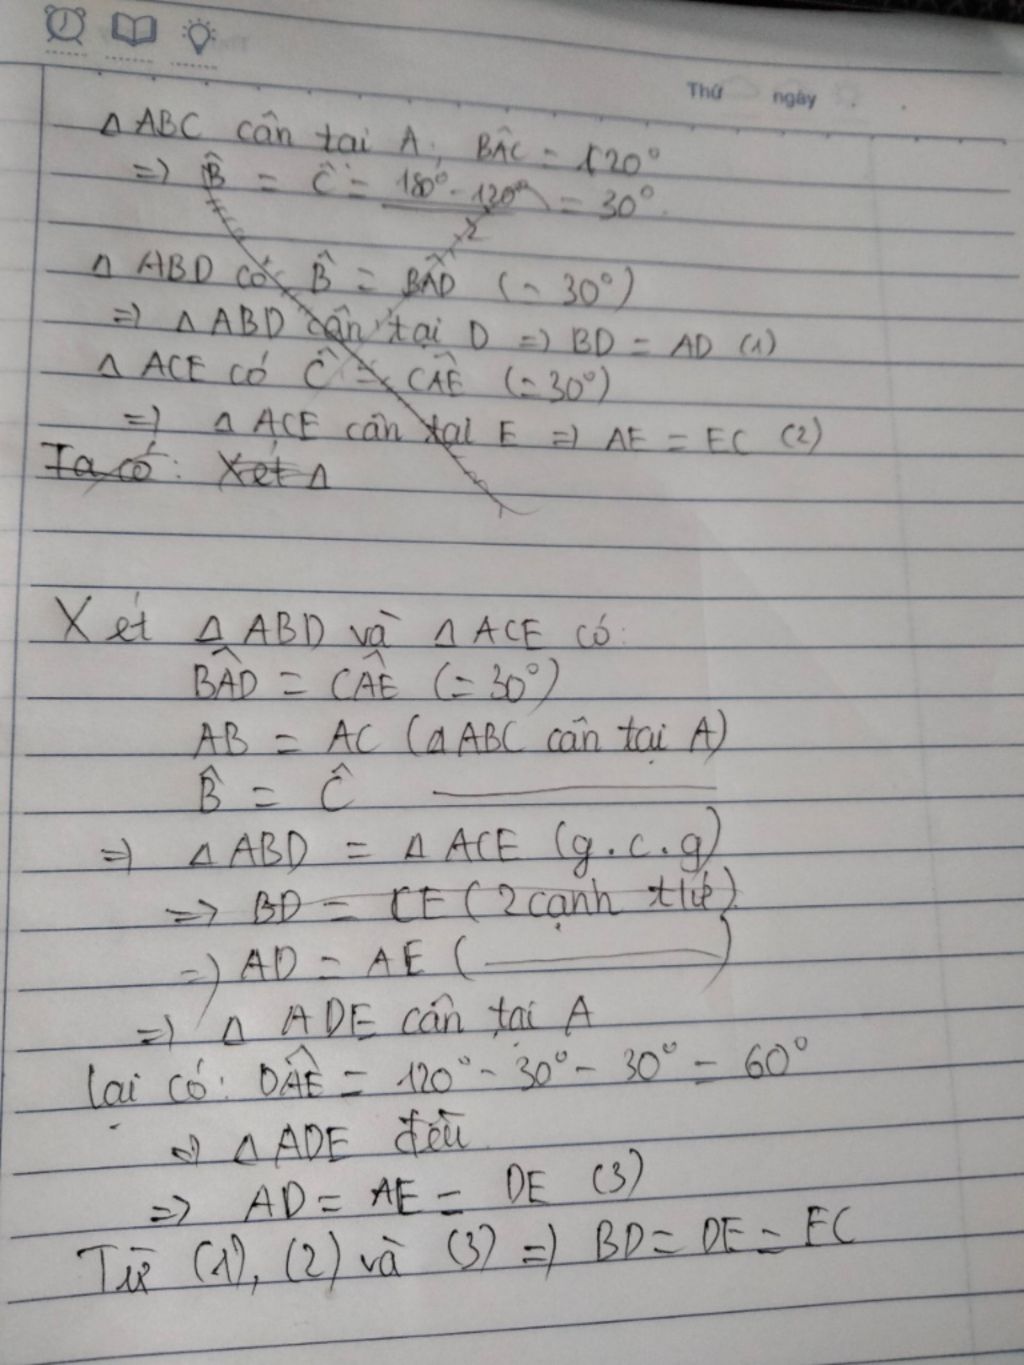 Thứ ngày
Δ ABC cân tại A, BÂC = 120°
=> B̂ = Ĉ = 180° - 120° / 2 = 30°
Δ ABD có B̂ = BÂD (= 30°)
=> Δ ABD cân tại D => BD = AD (1)
Δ ACE có Ĉ = CÂE (= 30°)
=> Δ ACE cân tại E => AE = EC (2)
Ta có: Xét Δ
Xét Δ ABD và Δ ACE có:
BÂD = CÂE (= 30°)
AB = AC (Δ ABC cân tại A)
B̂ = Ĉ
=> Δ ABD = Δ ACE (g.c.g)
=> BD = CE (2 cạnh tư)
=> AD = AE ( )
=> Δ ADE cân tại A
lại có: DÂE = 120° - 30° - 30° = 60°
=> Δ ADE đều
=> AD = AE = DE (3)
Từ (1), (2) và (3) => BD = DE = EC